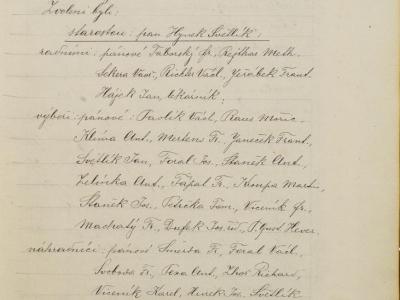 Zvoleni byli:
starostou: pan Hynek Světlík;
radními: pánové Táborský Fr., Rejthar Meth.
Sekera Vavř., Richter Václ., Jeřábek Frant.
Hájek Jan, lékárník;
výboři: pánové: Pavlík Václ., Raus Moric.
Klíma Ant., Mertens Fr., Janeček Frant.,
Světlík Jan, Foral Jos., Staněk Ant.,
Zelinka Ant., Fápal Fr., Kumpa Mart.,
Staněk Jos., Petřička Tom., Viceník Fr.,
Machatý Fr., Dufek Jos. řed., Gust. Hever.
náhradníci: pánové Smerda Fr., Foral Václ.,
Svoboda Fr., Pexa Ant., Zhoř Richard,
Viceník Karel, Hurek Jos., Světlík